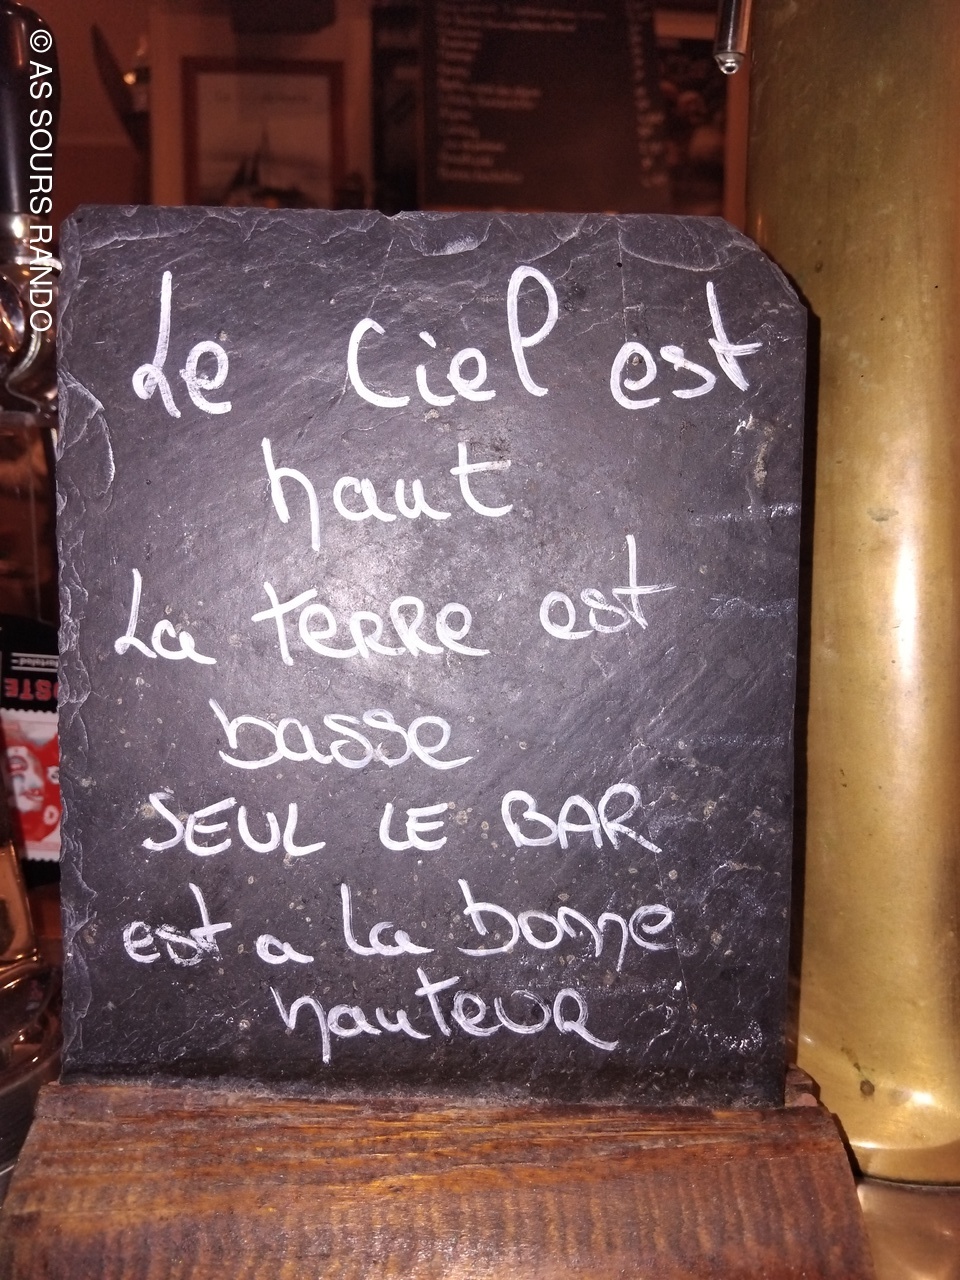 © AS SOURS RANDO
Le Ciel est
haut
La terre est
basse
SEUL LE BAR
est a la bonne
hauteur